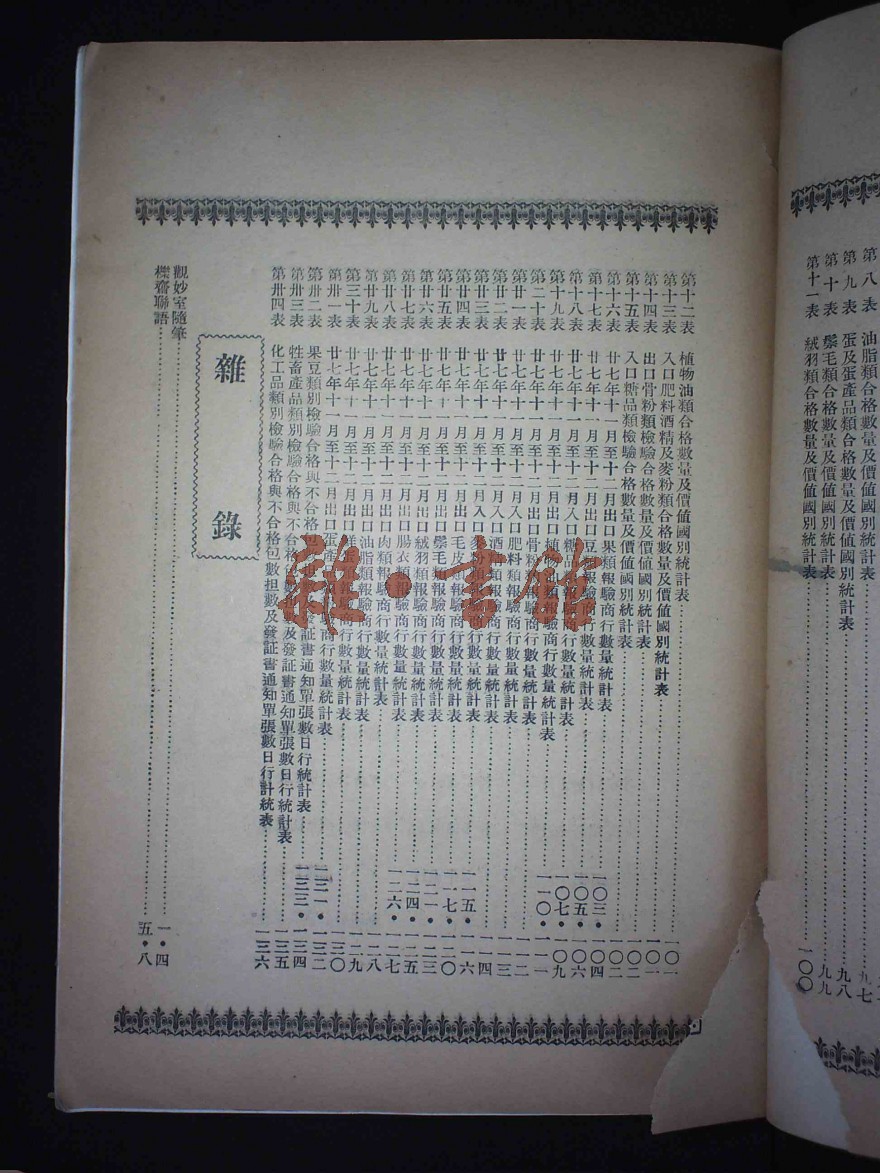 第八表 油脂類合格數量及價値國別統計表
第九表 蛋及蛋產品類合格數量及價値國別統計表……九八
第十表 鬃毛類合格數量及價値國別統計表……九九
第十一表 絨羽類合格數量及價値國別統計表……一〇〇
第十二表 植物油類合格數量及價値國別統計表……一〇一
第十三表 入口肥料酒精及麥粉類合格數量及價値國別統計表……一〇一
第十四表 出口骨粉類檢驗合格數量及價値國別統計表……一〇二
第十五表 入口糖品類檢驗合格數量及價値國別統計表……一〇二
第十六表 廿七年十一月至十二月出口果類報驗商行數量統計表……一〇三・一〇四
第十七表 廿七年十一月至十二月出口豆類報驗商行數量統計表……一〇五・一〇六
第十八表 廿七年十一月至十二月入口糖品類報驗商行數量統計表……一〇七・一〇九
第十九表 廿七年十一月至十二月出口植物油類報驗商行數量統計表……一一〇・一一一
第二十表 廿七年十一月至十二月出口骨粉類報驗商行數量統計表……一一二
第廿一表 廿七年十一月至十二月入口肥料類報驗商行數量統計表……一一三
第廿二表 廿七年十一月至十二月入口酒精類報驗商行數量統計表……一一四
第廿三表 廿七年十一月至十二月入口麥粉類報驗商行數量統計表……一一五・一一六
第廿四表 廿七年十一月至十二月出口毛皮類報驗商行數量統計表……一一七・一二〇
第廿五表 廿七年十一月至十二月出口鬃毛類報驗商行數量統計表……一二一・一二三
第廿六表 廿七年十一月至十二月出口絨羽類報驗商行數量統計表……一二四・一二五
第廿七表 廿七年十一月至十二月出口腸衣類報驗商行數量統計表……一二六・一二七
第廿八表 廿七年十一月至十二月出口肉類報驗商行數量統計表……一二八
第廿九表 廿七年十一月至十二月出口油脂類報驗商行數量統計表……一二九
第三十表 廿七年十一月至十二月出口鮮蛋類報驗商行數量統計表……一三〇
第卅一表 廿七年十一月至十二月出口蛋產品類報驗商行數量統計表……一三一・一三二
第卅二表 果豆類別檢驗合格與不合格包數担數及發証書通知單張數日行統計表……一三三・一三四
第卅三表 牲畜產品類別檢驗合格與不合格包數担數及發証書通知單張數日行統計表……一三五
第卅四表 化工品類別檢驗合格與不合格包數担數及發証書通知單張數日行計統表……一三六
雜錄
觀妙室隨筆……一・四
櫟齋聯語……五・八
雜·書館